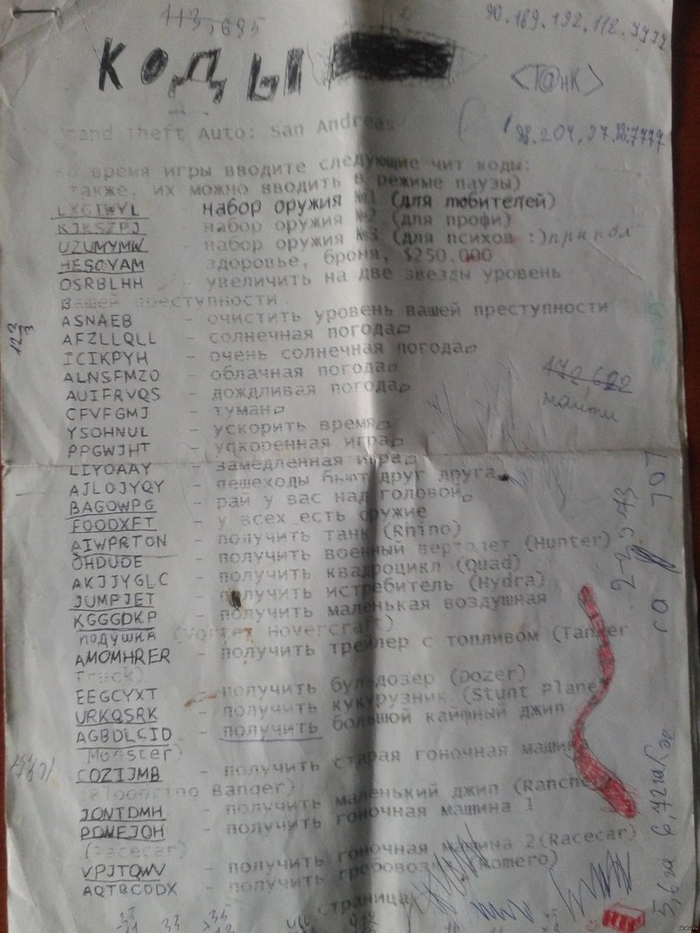 113,685
90.189.192.112.7777
КОДЫ
<Т@нК>
Grand Theft Auto: San Andreas
во время игры вводите следующие чит коды:
также, их можно вводить в режиме паузы)
LXGIWYL набор оружия №1 (для любителей)
KJKSZPJ - набор оружия №2 (для профи)
UZUMYMW - набор оружия №3 (для психов :) прикол
HESOYAM - здоровье, броня, $250.000
OSRBLHH - увеличить на две звезды уровень
вашей преступности
ASNAEB - очистить уровень вашей преступности
AFZLLQLL - солнечная погода
ICIKPYH - очень солнечная погода
ALNSFMZO - облачная погода
AUIFRVQS - дождливая погода
CFVFGMJ - туман
YSOHNUL - ускорить время
PPGWJHT - ускоренная игра
LIYOAAY - замедленная игра
AJLOJYQY - пешеходы бьют друг друга
BAGOWPG - рай у вас над головой
FOOOXFT - у всех есть оружие
AIWPRTON - получить танк (Rhino)
OHDUDE - получить военный вертолет (Hunter)
AKJJYGLC - получить квадроцикл (Quad)
JUMPJET - получить истребитель (Hydra)
KGGGDKP - получить маленькая воздушная
подушка (Vortex Hovercraft)
AMOMHRER - получить трейлер с топливом (Tanker
Truck)
EEGCYXT - получить бульдозер (Dozer)
URKQSRK - получить кукурузник (Stunt Plane)
AGBDLCID - получить большой кайфный джип
Monster)
CQZIJMB - получить старая гоночная машина
(Bloodring Banger)
JQNTDMH - получить маленький джип (Rancher)
PDNEJOH - получить гоночная машина 1
(Racecar)
VPJTQWV - получить гоночная машина 2(Racecar)
AQTBCODX - получить гробовозка (Romero)
страница
172,682
найти